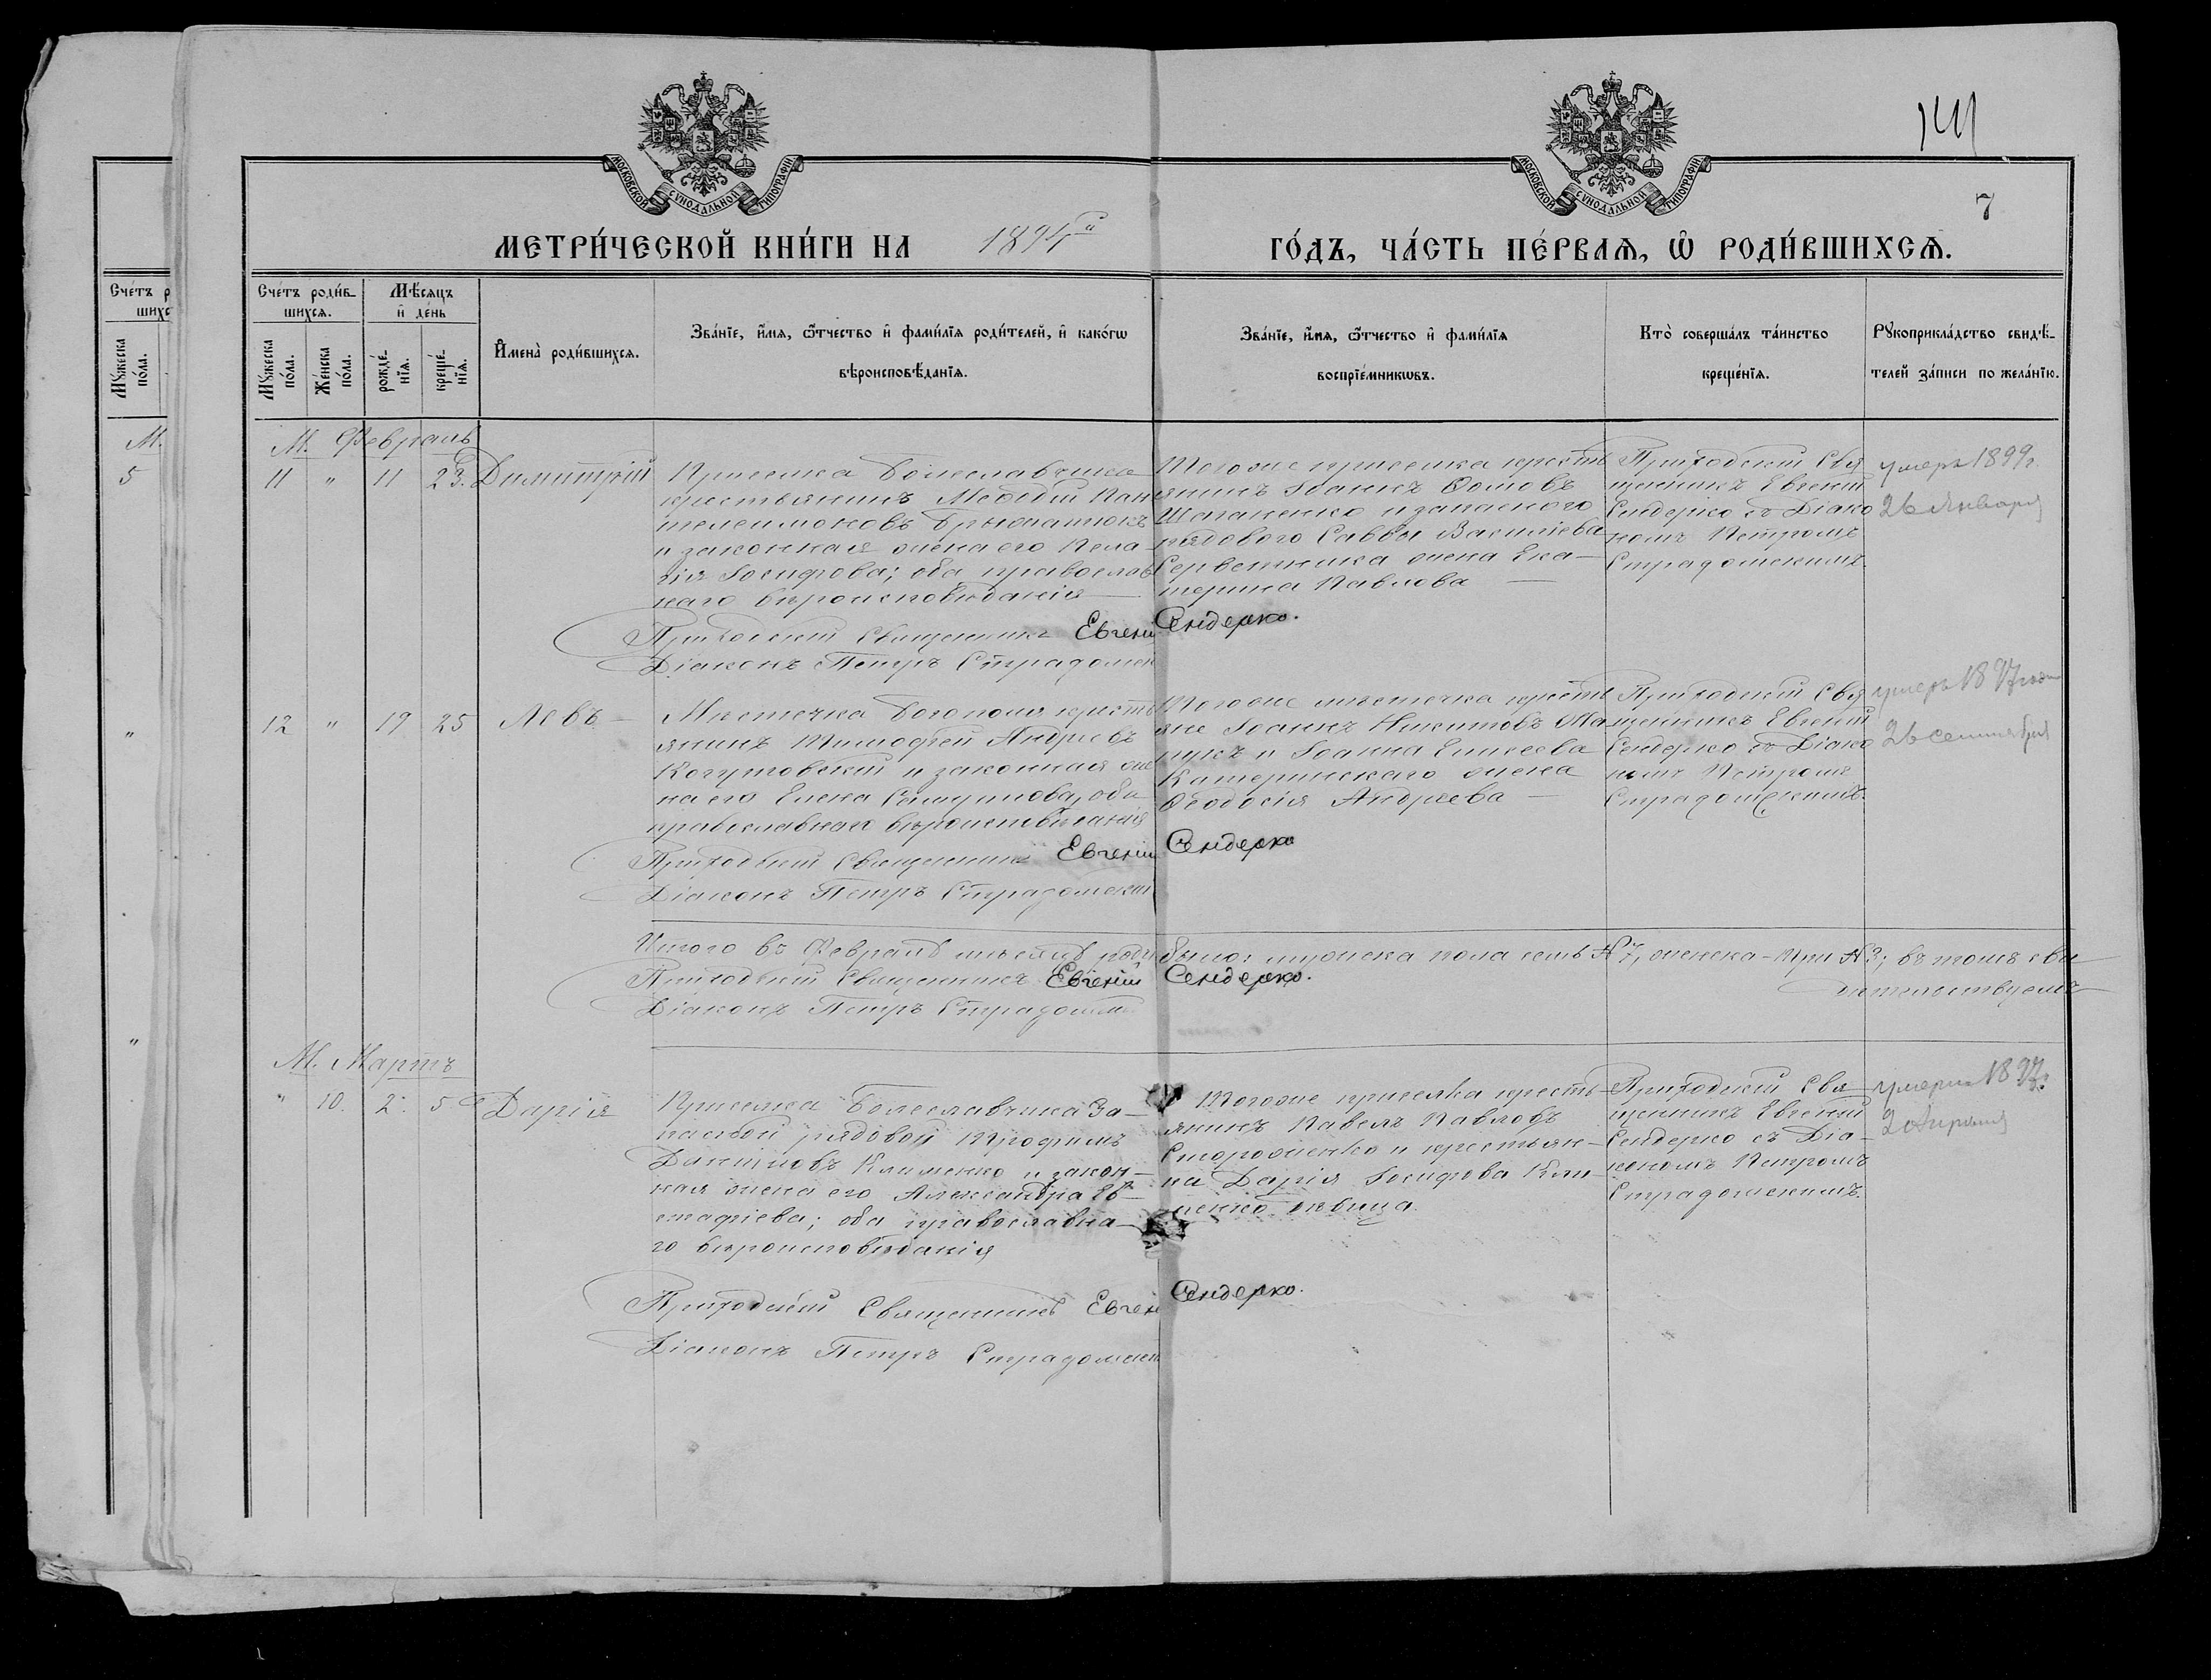 МОСКОВСКОЙ СУНОДАЛЬНОЙ ТИПОГРАФІИ
МОСКОВСКОЙ СУНОДАЛЬНОЙ ТИПОГРАФІИ
7
МЕТРИ́ЧЕСКОЙ КНИ́ГИ НА 1894й ГО́ДЪ, ЧА́СТЬ ПЕ́РВАѦ, Ѡ҆ РОДИ́ВШИХСѦ.
Сче́тъ роди́в-
шихсѧ.
Мꙋ́жеска по́ла.
Же́нска по́ла.
Мѣ́сѧцъ
и҆ де́нь
рожде́-
нїѧ.
креще́-
нїѧ.
И҆мена̀ роди́вшихсѧ.
Зва́нїе, и҆́мѧ, ѻ҆́тчество и҆ фами́лїѧ роди́телей, и҆ како́гѡ
вѣроисповѣ́данїѧ.
Зва́нїе, и҆́мѧ, ѻ҆́тчество и҆ фами́лїѧ
воспрїе́мникѡвъ.
Кто̀ соверша́лъ та́инство
креще́нїѧ.
Рꙋкоприкла́дство свидѣ́-
телей за́писи по жела́нїю.
М.
5
М. Февраль
11 " 11 23. Димитрій
Приселка Болеславчика
крестьянинъ Меѳодій Пан
телеимоновъ
и законная жена его Пела-
гія Іосифова; оба православ
наго вѣроисповѣданія
Тогоже приселка кресть
янинъ Іоаннъ Ѳомовъ
и запаснаго
рядового Саввы Василіева
жена Ека-
терина Павлова
Приходскій Свя
щенникъ Евгеній
Сендерко съ Діако
номъ Петромъ
Страдомскимъ.
умеръ 1899г.
26 Января
Приходскій Священникъ Евгеній Сендерко.
Діаконъ Петръ Страдомск
12 " 19 25 Левъ
Мѣстечка Богополя кресть
янинъ Тимофей Андреевъ
и законная же
на его Елена оба
православнаго вѣроисповѣданія
Тогоже мѣстечка кресть
яне Іоаннъ Никитовъ
и Іоанна Елисеева
жена
Ѳеодосія Андреева
Приходскій Свя
щенникъ Евгеній
Сендерко съ Діако
номъ Петромъ
Страдомскимъ.
умеръ 1897 года
26 сентября
Приходскій Священникъ Евгеній Сендерко
Діаконъ Петръ Страдомскій
Итого въ Февралѣ мѣсяцѣ роди было: мужеска пола семь № 7, женска - три № 3; въ томъ сви
дѣтельствуемъ
Приходскій Священникъ Евгеній Сендерко.
Діаконъ Петръ Страдомск
М. Мартъ
" 10. 2. 5 Дарія
Приселка Болеславчика За-
пасной рядовой Трофимъ
Даниловъ Клименко и закон-
ная жена его Александра Ев-
стафіева; оба православна-
го вѣроисповѣданія
Тогоже приселка кресть-
янинъ Павелъ Павловъ
Стороженко и крестьян-
ка Дарія Іосифова Кли-
менко дѣвица.
Приходскій Свя-
щенникъ Евгеній
Сендерко съ Діа-
кономъ Петромъ
Страдомскимъ.
умерла 1897г.
2 Апрѣля
Приходскій Священникъ Евгені Сендерко.
Діаконъ Петръ Страдомск